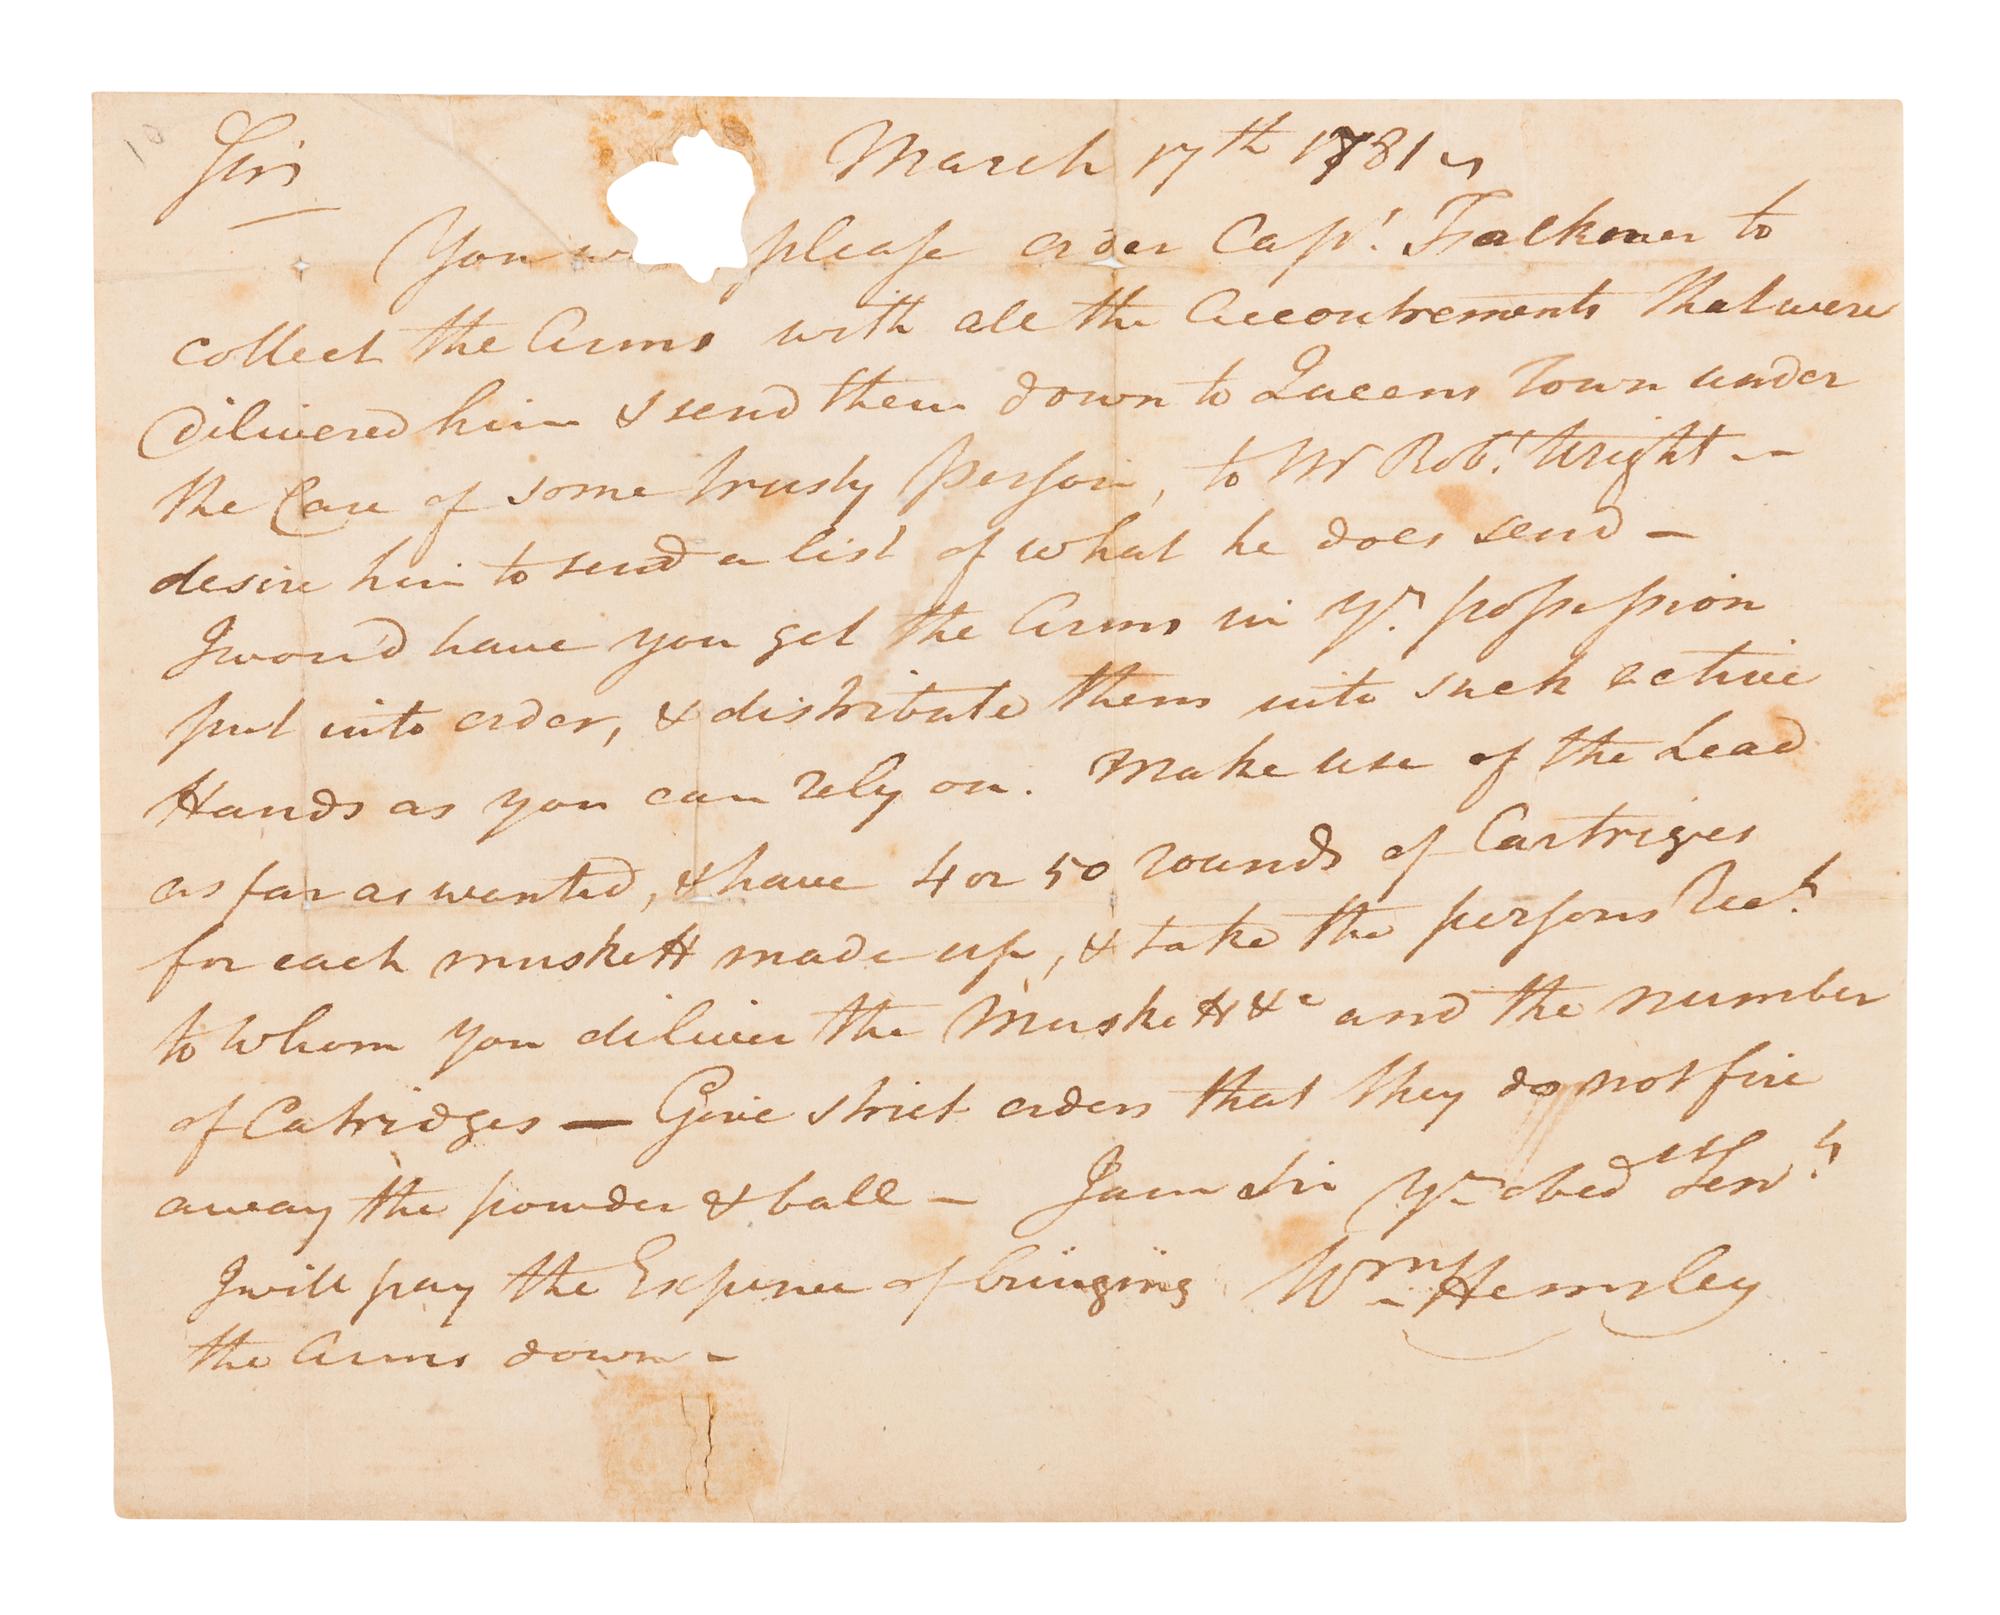 Sir March 17th 1781
You please order Capt. Falkoner to
collect the Arms with all the Accoutrements that were
dilivered him & send them down to Queens Town under
the Care of some trusty person, to Mr Robt. Wright --
desire him to send a list of what he does send -
I wou'd have you get the Arms in Yr. possession
put into order, & distribute them into such active
Hands as you can rely on. Make use of the Lead
as far as wanted, & have 4 or 50 rounds of Cartriges
for each muskett made up, & take the persons Rect.
to whom you diliver the Muskett &c and the number
of Catridges — Give strict orders that they do not fire
away the powder & ball - I am Sir Yr obed Servt
I will pay the Expence of bringing Wm Hemsley
the Arms down -